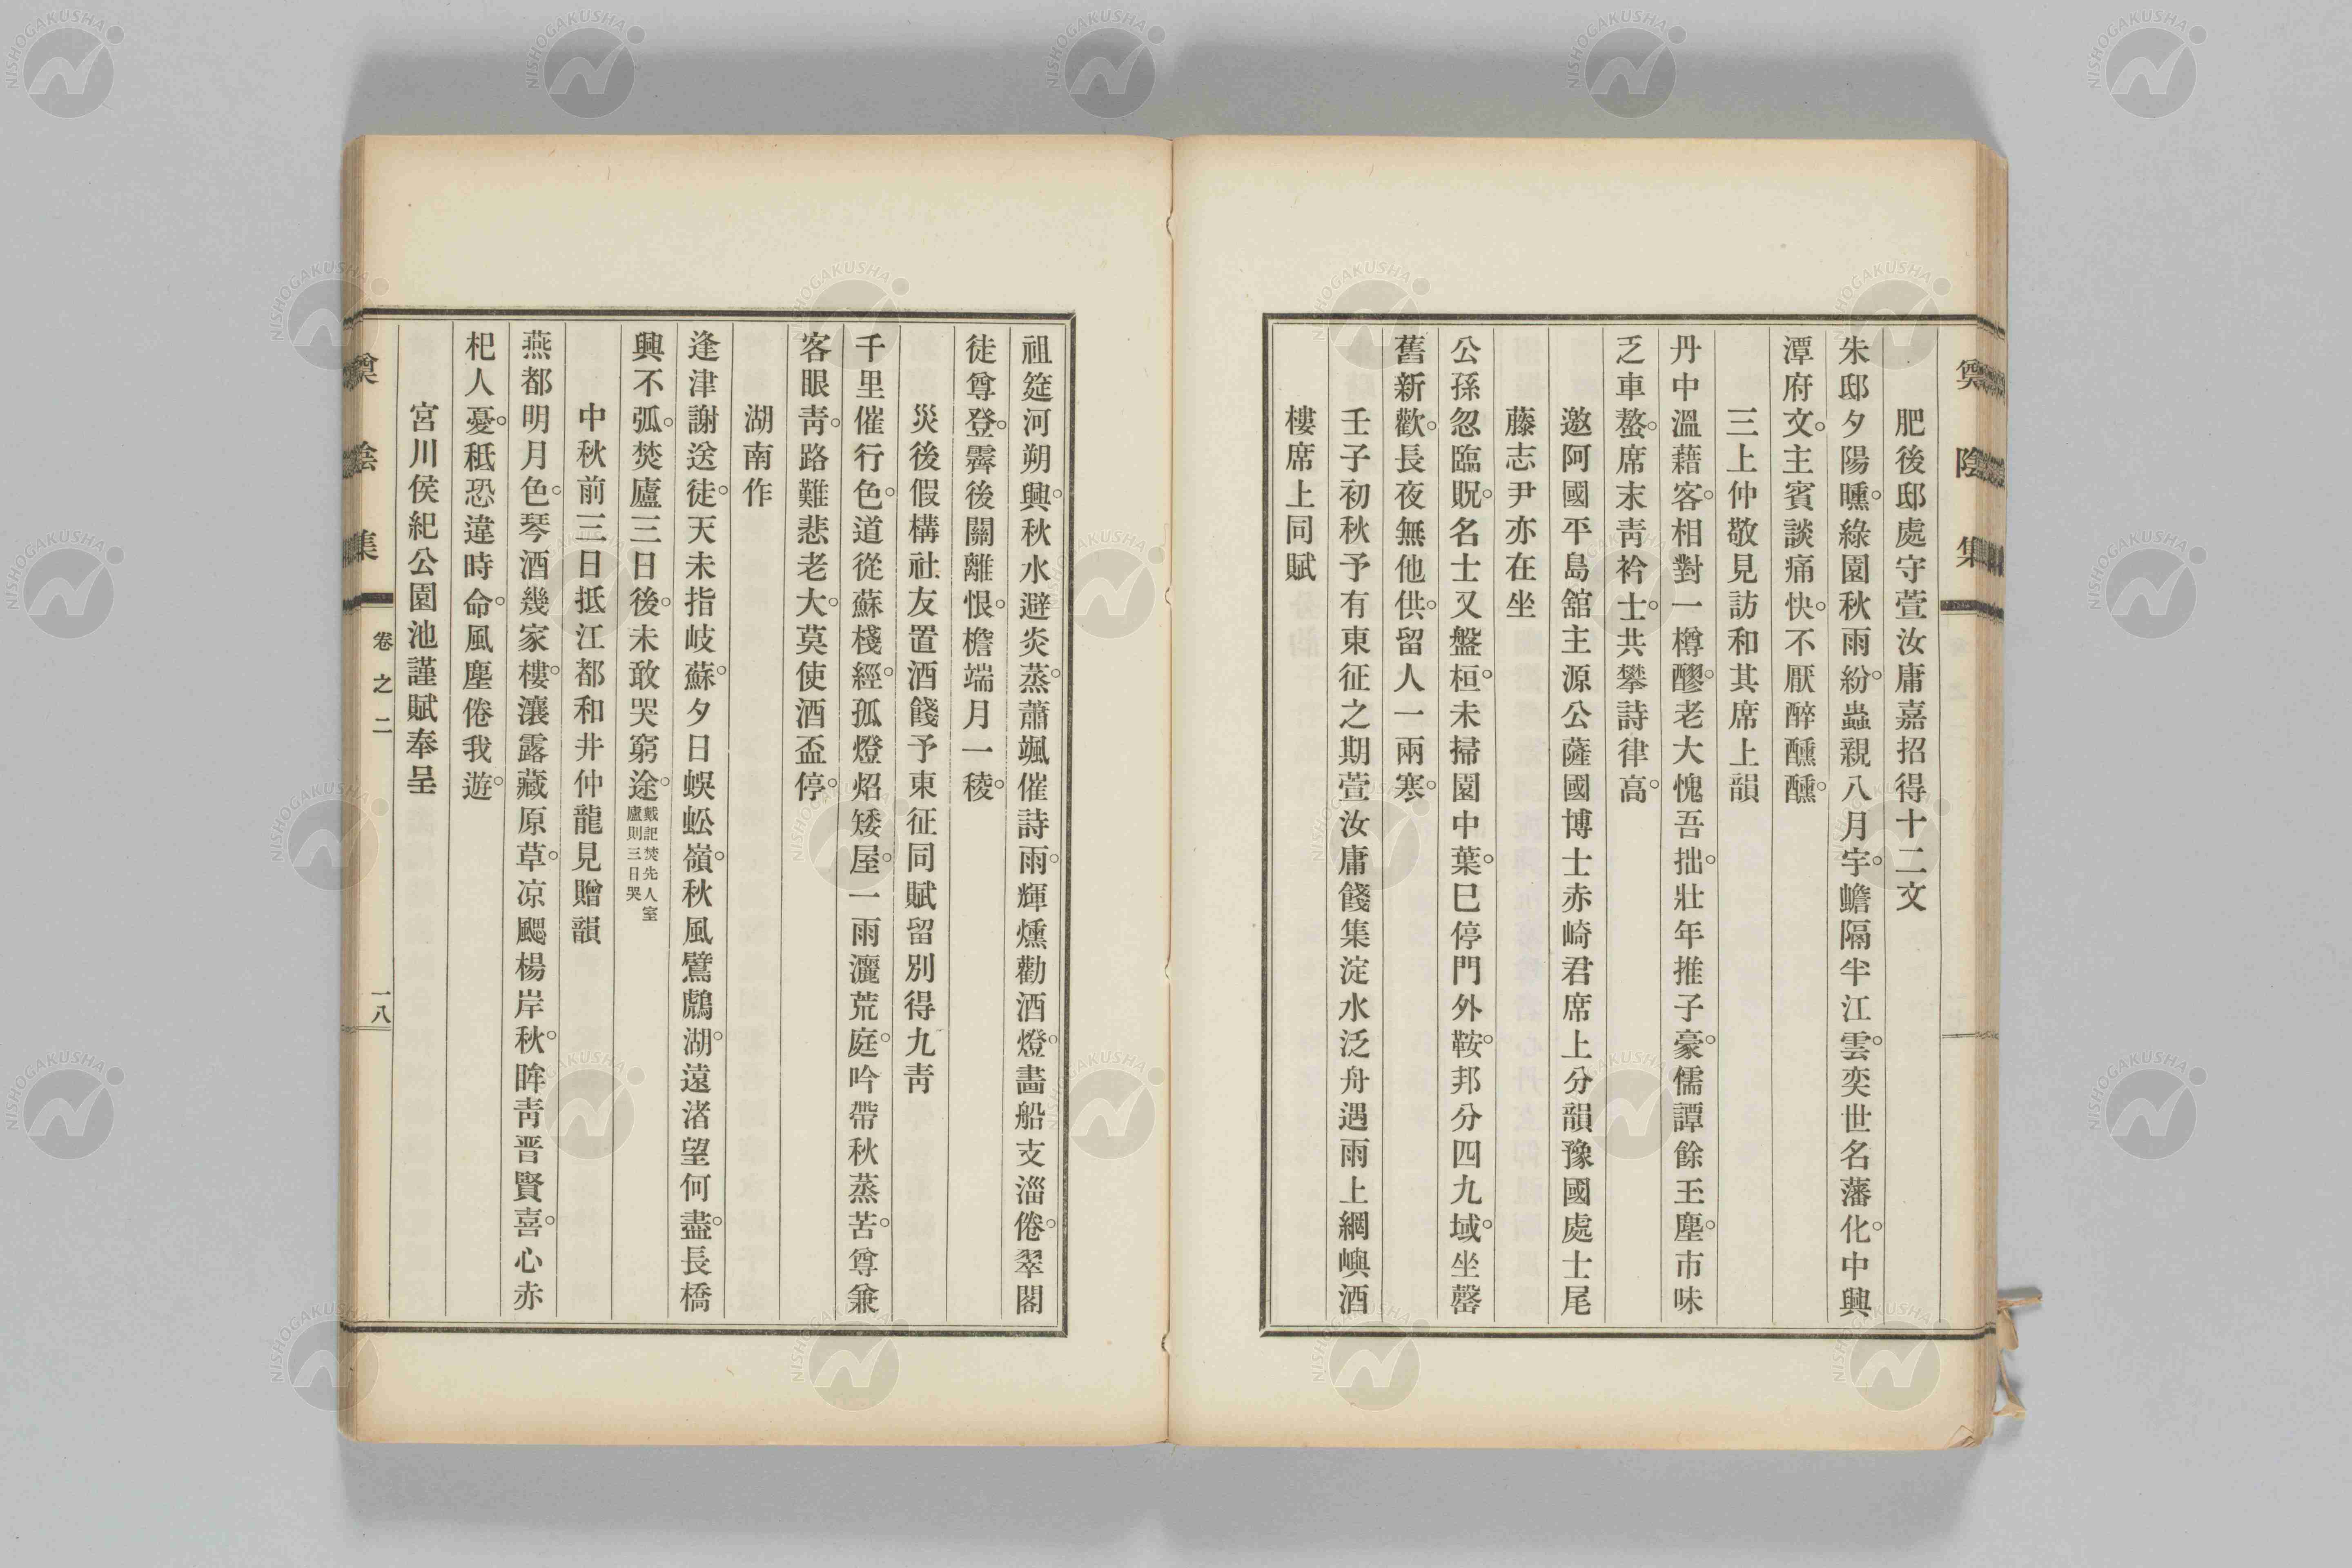 奠陰集
肥後邸處守萱汝庸嘉招得十二文
朱邸夕陽曛。綠園秋雨紛。蟲親八月宇。蟾隔半江雲。奕世名藩化。中興
潭府文。主賓談痛快。不厭醉醺醺。
三上仲敬見訪和其席上韻
丹中溫藉客。相對一樽醪。老大愧吾拙。壯年推子豪。儒譚餘玉塵。市味
乏車螯。席末靑衿士。共攀詩律高。
邀阿國平島舘主源公薩國博士赤崎君席上分韻豫國處士尾
藤志尹亦在坐
公孫忽臨貺。名士又盤桓。未掃園中葉。已停門外鞍。邦分四九域。坐罄
舊新歡。長夜無他供。留人一兩寒。
壬子初秋予有東征之期萱汝庸餞集淀水泛舟遇雨上網嶼酒
樓席上同賦
祖筵河朔興。秋水避炎蒸。蕭颯催詩雨。輝燻勸酒燈。畵船支淄倦。翠閣
徒尊登。霽後關離恨。檐端月一稜。
災後假構社友置酒餞予東征同賦留別得九靑
千里催行色。道從蘇棧經。孤燈炤矮屋。一雨灑荒庭。吟帶秋蒸苦。尊兼
客眼靑。路難悲老大。莫使酒盃停。
湖南作
逢津謝送徒。天未指岐蘇。夕日蜈蚣嶺。秋風鷿鷉湖。遠渚望何盡。長橋
興不弧。焚廬三日後。未敢哭窮途。戴記焚先人室廬則三日哭
中秋前三日抵江都和井仲龍見贈韻
燕都明月色。琴酒幾家樓。瀼露藏原草。凉颸楊岸秋。眸靑晋賢喜。心赤
杞人憂。秪恐違時命。風塵倦我遊。
宮川侯紀公園池謹賦奉呈
奠陰集 卷之二 一八
NISHOGAKUSHA